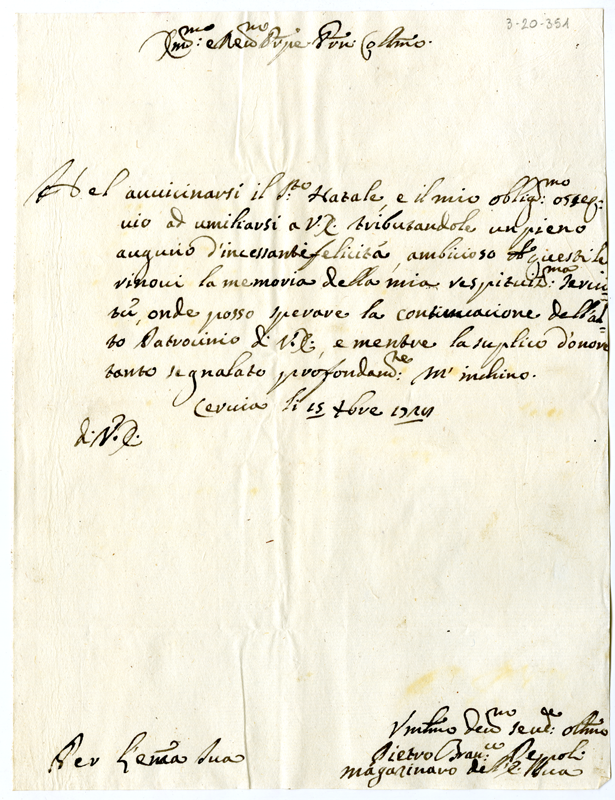 3-20-351
Emo: e Revmo Prpe Prn Colmo.
Nel auuicinarsi il Sto Natale, e il mio obligmo: osseq-
uio ad umiliarsi a V.E. tributandole un pieno
augurio d'incessante felicità, ambicioso che questi le
rinoui la memoria della mia respituidma: seruit-
tù, onde posso sperare la continuacione dell'al-
to Patrocinio di V.E., e mentre la suplico d'onore
tanto segnalato profondante: m'inchino.
Ceruia li 15 Xbre
di V.E.
Vmilmo deuo seude: oblmo
Pietro Pepoli
magazinaro dell'E. Sua
Per L'emza Sua